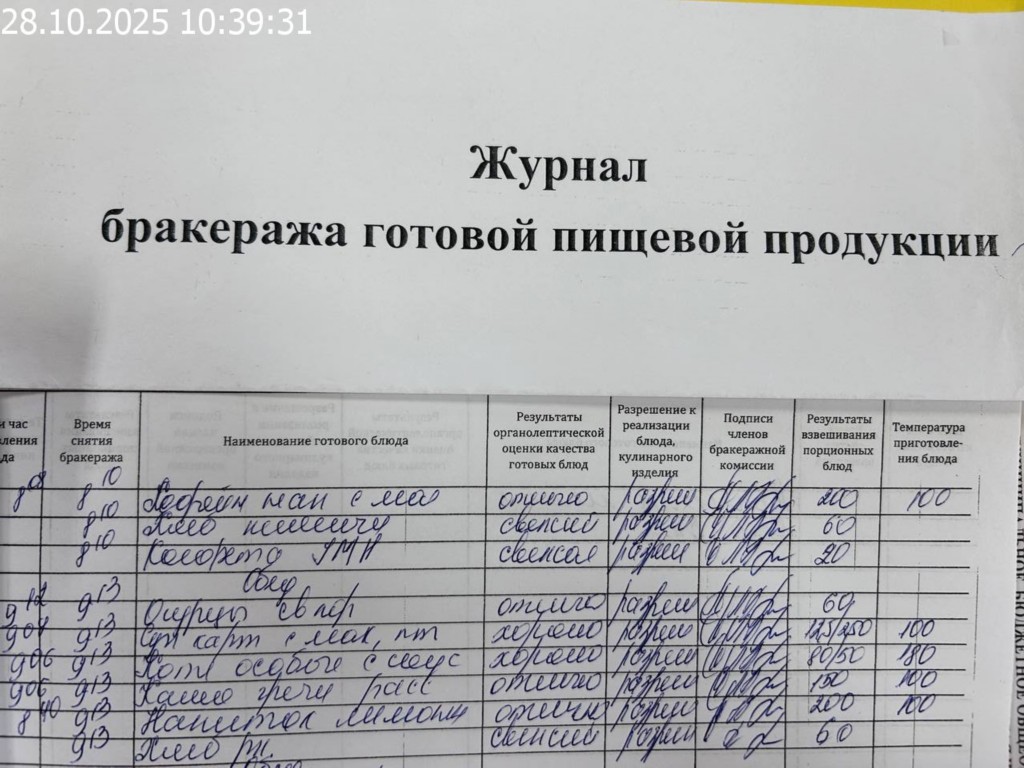 28.10.2025 10:39:31
Журнал
бракеража готовой пищевой продукции
и час
ления
да
Время
снятия
бракеража
Наименование готового блюда
Результаты
органолептической
оценки качества
готовых блюд
Разрешение к
реализации
блюда,
кулинарного
изделия
Подписи
членов
бракеражной
комиссии
Результаты
взвешивания
порционных
блюд
Температура
приготовле-
ния блюда
8 10 с мол отлично разреш 200 100
8 10 разреш 60
8 10 разреш 20
Обед
9 12 9 13 Огурцы св пор отлично разреш 60
9 04 9 13 Суп карт с мак, пт хорошо разреш 125/250 100
9 06 9 13 Котл особые с соус хорошо разреш 80/50 180
9 06 9 13 Каша греч расс отлично разреш 150 100
8 40 9 13 Напиток лимонн отлично разреш 200 100
9 13 разреш 60